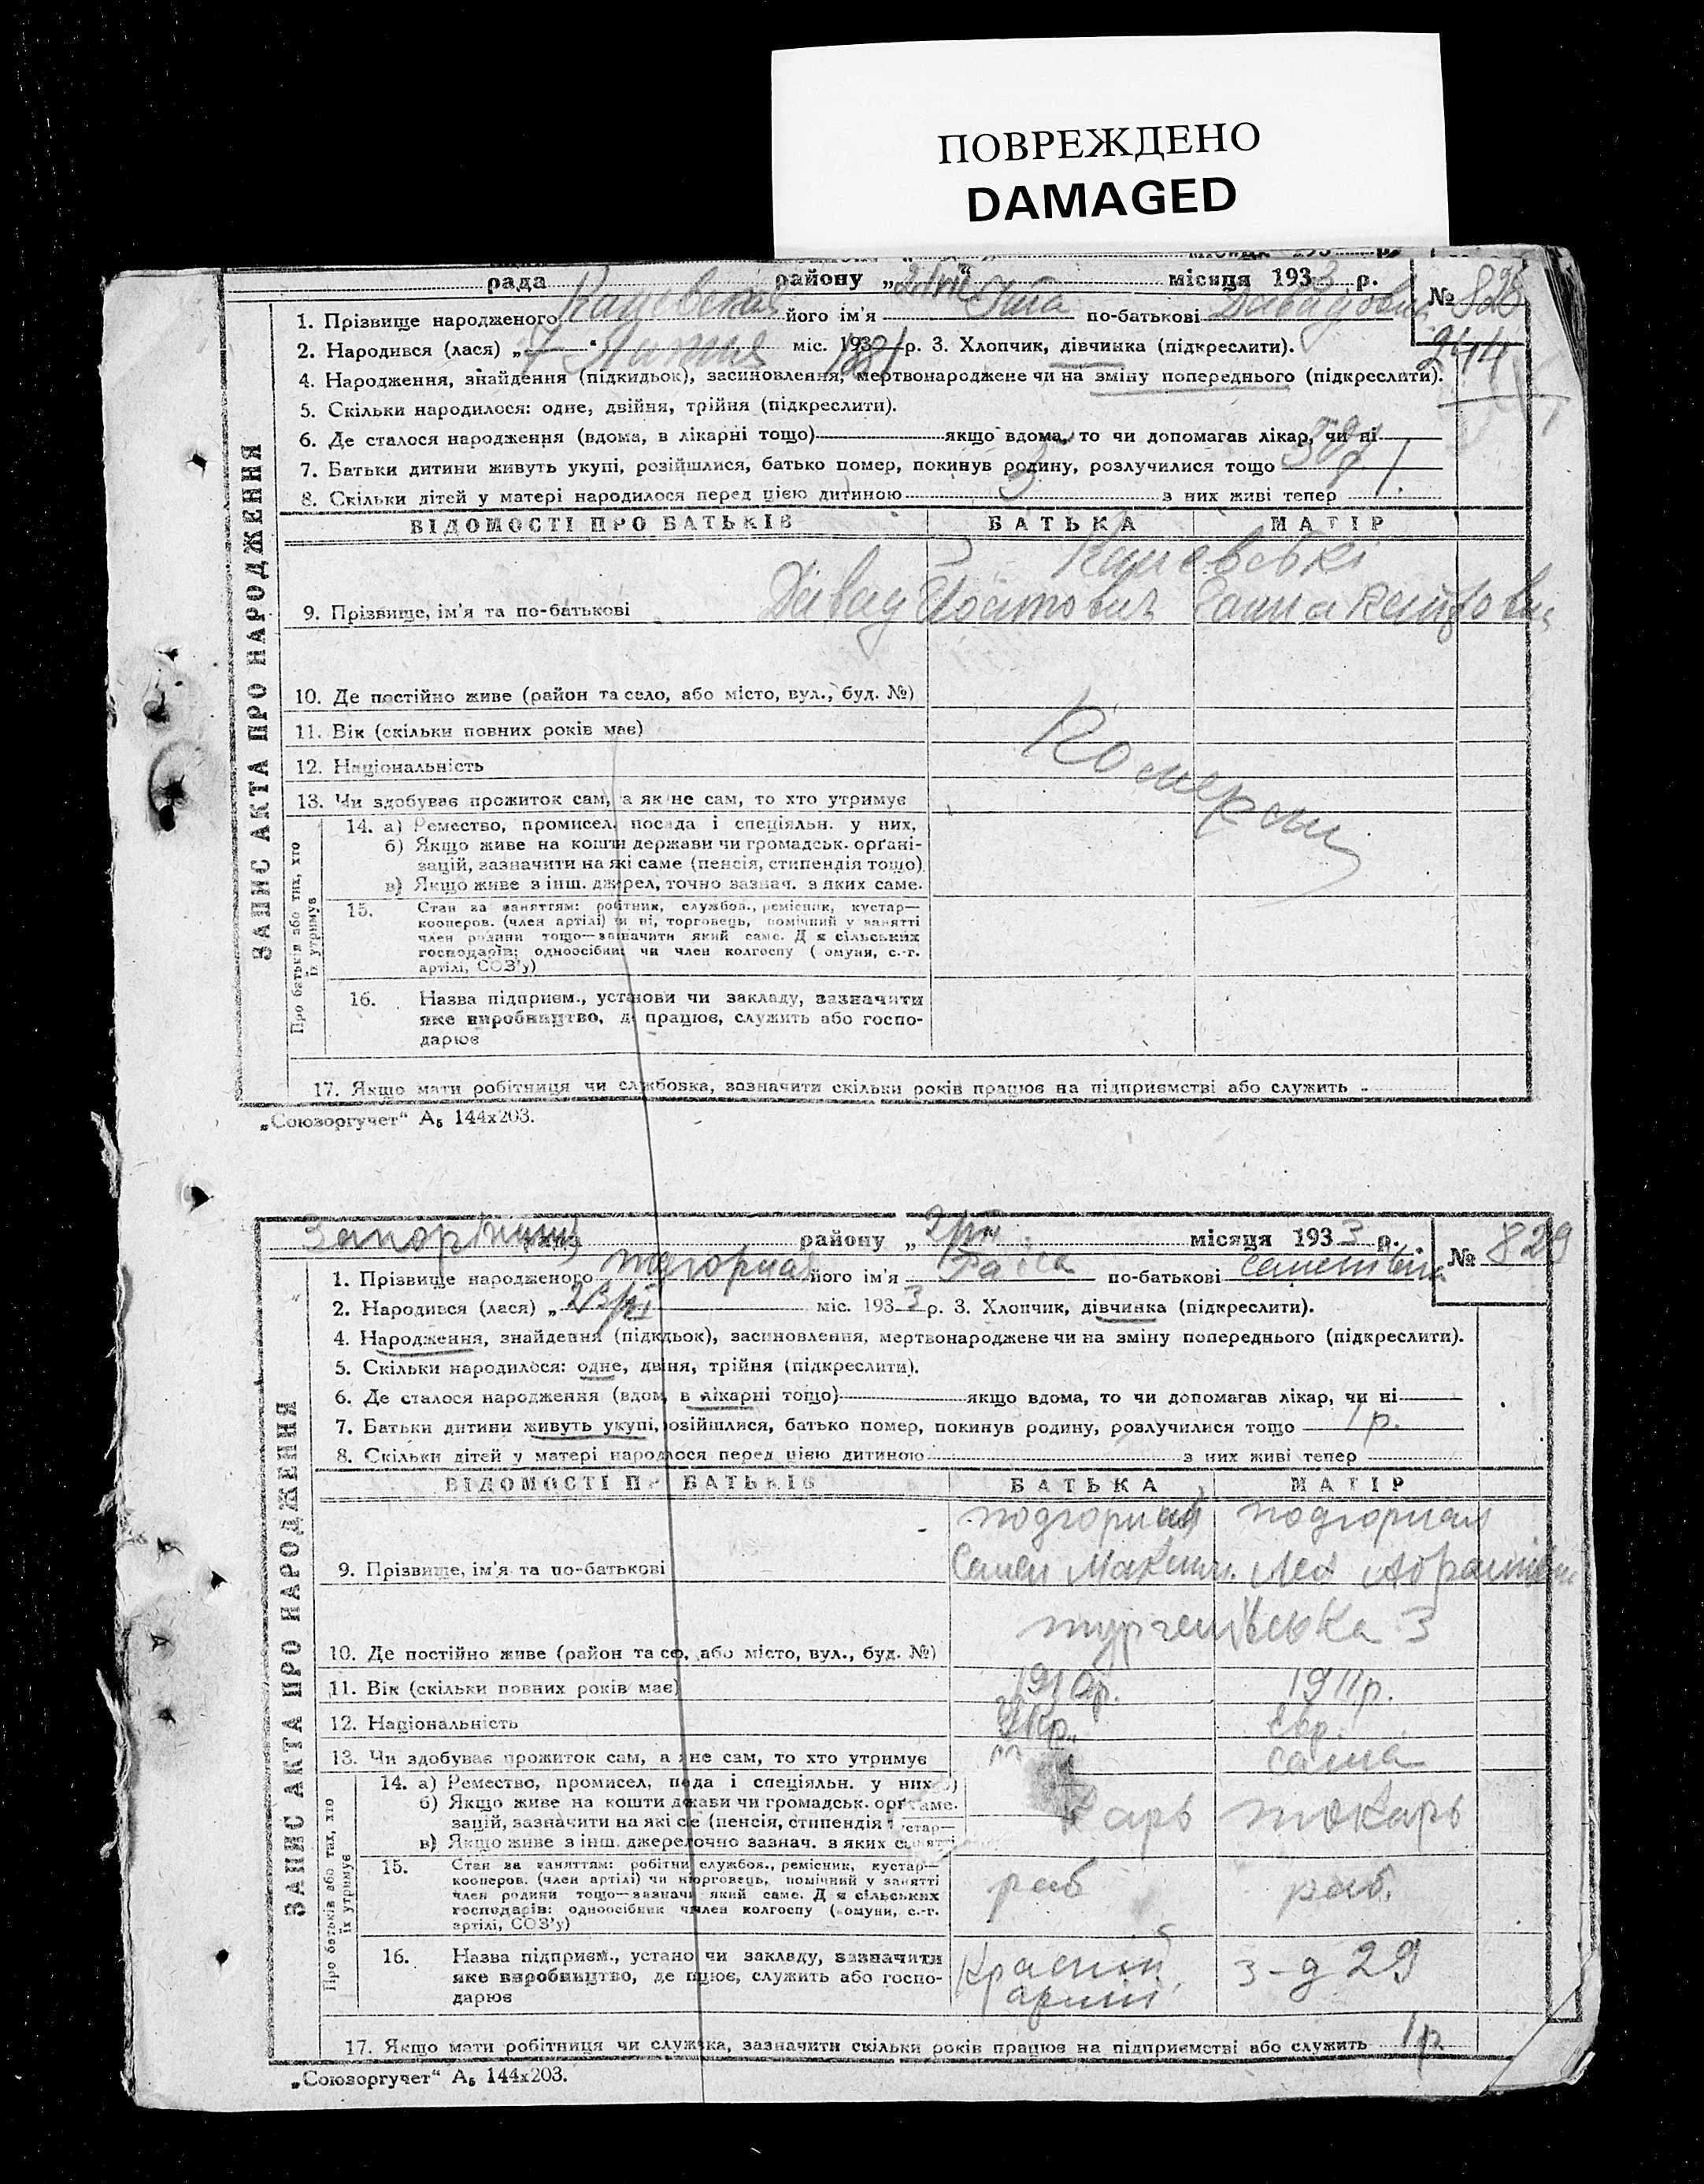 ПОВРЕЖДЕНО
DAMAGED
рада району „ “ місяця 1933 р.
№ 828
1. Прізвище народженого його ім'я по-батькові
2. Народився (лася) „ “ міс. 193 р. 3. Хлопчик, дівчинка (підкреслити).
244
4. Народження, знайдення (підкидьок), засиновлення, мертвонароджене чи на зміну попереднього (підкреслити).
5. Скільки народилося: одне, двійня, трійня (підкреслити).
6. Де сталося народження (вдома, в лікарні тощо) якщо вдома, то чи допомагав лікар, чи ні
7. Батьки дитини живуть укупі, розійшлися, батько помер, покинув родину, розлучилися тощо
8. Скільки дітей у матері народилося перед цією дитиною 3 з них живі тепер
ЗАПИС АКТА ПРО НАРОДЖЕННЯ
ВІДОМОСТІ ПРО БАТЬКІВ БАТЬКА МАТІР
9. Прізвище, ім'я та по-батькові Давид
10. Де постійно живе (район та село, або місто, вул., буд. №)
11. Вік (скільки повних років має)
12. Національність
13. Чи здобуває прожиток сам, а як не сам, то хто утримує
Про батьків або тих, хто їх утримує
14. а) Ремество, промисел, посада і спеціяльн. у них,
б) Якщо живе на кошти держави чи громадськ. орґані-
зацій, зазначити на які саме (пенсія, стипендія тощо)
в) Якщо живе з інш. джерел, точно зазнач. з яких саме.
15. Стан за заняттям: робітник, службов., ремісник, кустар—
кооперов. (член артілі) чи ні, торговець, помічний у занятті
член родини тощо—зазначити який саме. Д я сільських
господарів: одноосібник чи член колгоспу ( омуни, с.-г.
артілі, СОЗ'у)
16. Назва підприєм., установи чи закладу, зазначити
яке виробництво, де працює, служить або госпо-
дарює
17. Якщо мати робітниця чи службовка, зазначити скільки років працює на підприємстві або служить
„Союзоргучет“ А₅ 144х203.
рада району „ 2/VII місяця 1933 р.
№ 829
1. Прізвище народженого його ім'я Раіса по-батькові
2. Народився (лася) „ 23/VI міс. 1933 р. 3. Хлопчик, дівчинка (підкреслити).
4. Народження, знайдення (підкдьок), засиновлення, мертвонароджене чи на зміну попереднього (підкреслити).
5. Скільки народилося: одне, двіня, трійня (підкреслити).
6. Де сталося народження (вдом, в лікарні тощо) якщо вдома, то чи допомагав лікар, чи ні
7. Батьки дитини живуть укупі, розійшлися, батько помер, покинув родину, розлучилися тощо 1 р.
8. Скільки дітей у матері народлося перед цією дитиною з них живі тепер
ЗАПИС АКТА ПРО НАРОДЖЕННЯ
ВІДОМОСТІ П БАТЬКІВ БАТЬКА МАТІР
подгорная
9. Прізвище, ім'я та по-батькові Семен Лея
тургенівська 3
10. Де постійно живе (район та се, або місто, вул., буд. №)
11. Вік (скільки повних років має) 1910р. 1911р.
12. Національність Укр. Євр.
13. Чи здобуває прожиток сам, а яне сам, то хто утримує сама
Про батьків або тих, хто їх утримує
14. а) Ремество, промисел, пода і спеціяльн. у них
б) Якщо живе на кошти дкави чи громадськ. орґ
зацій, зазначити на які се (пенсія, стипендія
в) Якщо живе з інш. джерелочно зазнач. з яких
арь токарь
15. Стан за заняттям: робітни службов., ремісник, кустар—
кооперов. (член артілі) чи нторговець, помічний у занятті
член родини тощо—зазначи який саме. Д я сільських
господарів: одноосібник члев колгоспу ( омуни, с.-г.
артілі, СОЗ'у)
раб раб.
16. Назва підприєм., устано чи закладу, зазначити
яке виробництво, де пцює, служить або госпо-
дарює
з-д 29
17. Якщо мати робітниця чи служка, зазначити скільки років працює на підприємстві або служить 1р
„Союзоргучет“ А₅ 144х203.